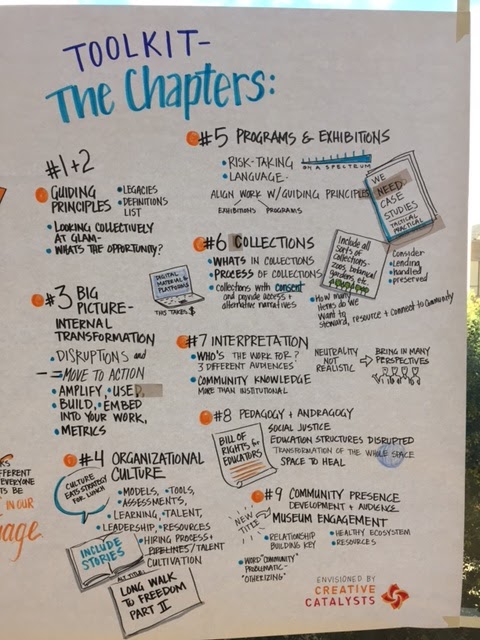 TOOLKIT-
The Chapters:
#1+2
GUIDING
PRINCIPLES
• LEGACIES
• DEFINITIONS
LIST
• LOOKING COLLECTIVELY
AT GLAM-
• WHATS THE OPPORTUNITY?
#3 BIG
PICTURE-
INTERNAL
TRANSFORMATION
DIGITAL
MATERIAL &
PLATFORMS
THIS TAKES $
• DISRUPTIONS and
MOVE TO ACTION
• AMPLIFY, USED,
• BUILD, • EMBED
INTO YOUR WORK,
• METRICS
#4 ORGANIZATIONAL
CULTURE
CULTURE
EATS STRATEGY
FOR LUNCH
• MODELS, • TOOLS,
• ASSESSMENTS,
• LEARNING, • TALENT,
• LEADERSHIP, • RESOURCES
• HIRING PROCESS +
PIPELINES/TALENT
CULTIVATION
INCLUDE
STORIES
ALT. TITLE:
LONG WALK
TO FREEDOM
PART II
#5 PROGRAMS & EXHIBITIONS
• RISK-TAKING
ON A SPECTRUM
• LANGUAGE-
ALIGN WORK W/GUIDING PRINCIPLES
EXHIBITIONS PROGRAMS
WE
NEED-
CASE
STUDIES
TACTICAL
PRACTICAL
#6 COLLECTIONS
• WHATS IN COLLECTIONS
• PROCESS OF COLLECTIONS
• collections with consent
and provide access +
alternative narratives
Include all
sorts of
collections-
zoos, botanical
gardens, etc.
Consider
• Lending
• handled
• preserved
• How many
items do we
want to
steward, resource + connect to community
#7 INTERPRETATION
• WHO'S THE WORK FOR?
3 DIFFERENT AUDIENCES
• COMMUNITY KNOWLEDGE
MORE THAN INSTITUTIONAL
NEUTRALITY
NOT
REALISTIC
BRING IN MANY
PERSPECTIVES
#8 PEDAGOGY + ANDRAGOGY
BILL OF
RIGHTS for
EDUCATORS
SOCIAL JUSTICE
EDUCATION STRUCTURES DISRUPTED
TRANSFORMATION OF THE WHOLE SPACE
SPACE TO HEAL
#9 COMMUNITY PRESENCE
DEVELOPMENT + AUDIENCE
NEW
TITLE
MUSEUM ENGAGEMENT
• RELATIONSHIP
BUILDING KEY
• HEALTHY ECOSYSTEM
• RESOURCES
• WORD "COMMUNITY"
PROBLEMATIC-
"OTHERIZING"
ENVISIONED BY
CREATIVE
CATALYSTS
FFERENT
EVERYONE
TS BE
IN OUR